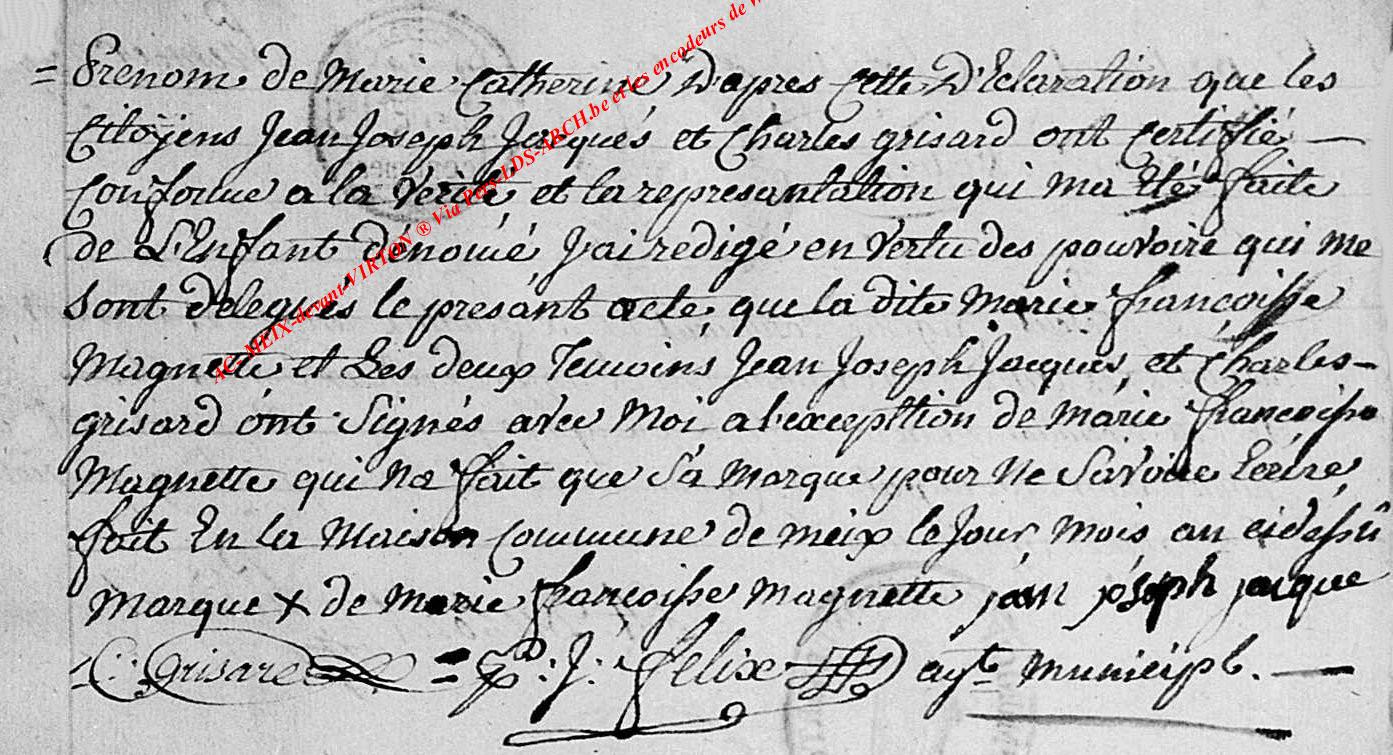 = Prenom de Marie Catherine D'apres Cette D'Eclaration que les
Citoyens Jean Joseph Jacqués et Charles grisard ont Certifié —
Conforme a la Verité et la represantation qui ma Eté faite
de L'Enfant dénomé J'ai redigé en Vertu des pouvoire qui me
Sont delegués le présant acte, que la dite Marie francoisse
Magnette et Les deux Temoins Jean Joseph Jacques, et Charles-
grisard ont Signés avec Moi a l'excepttion de Marie francoisse
Magnette qui Na fait que Sa Marque pour Ne Savoire Ecrire,
fait En La Maison Commune de Meix le Jour Mois an cidessû
Marque X de Marie francoisse Magnette jean jóseph jacque
C: Grisard = J: felix agt municipl. —
AC-MEIX-devant-VIRTON ® Via Pays-LDS-ARCH.be et les encodeurs de